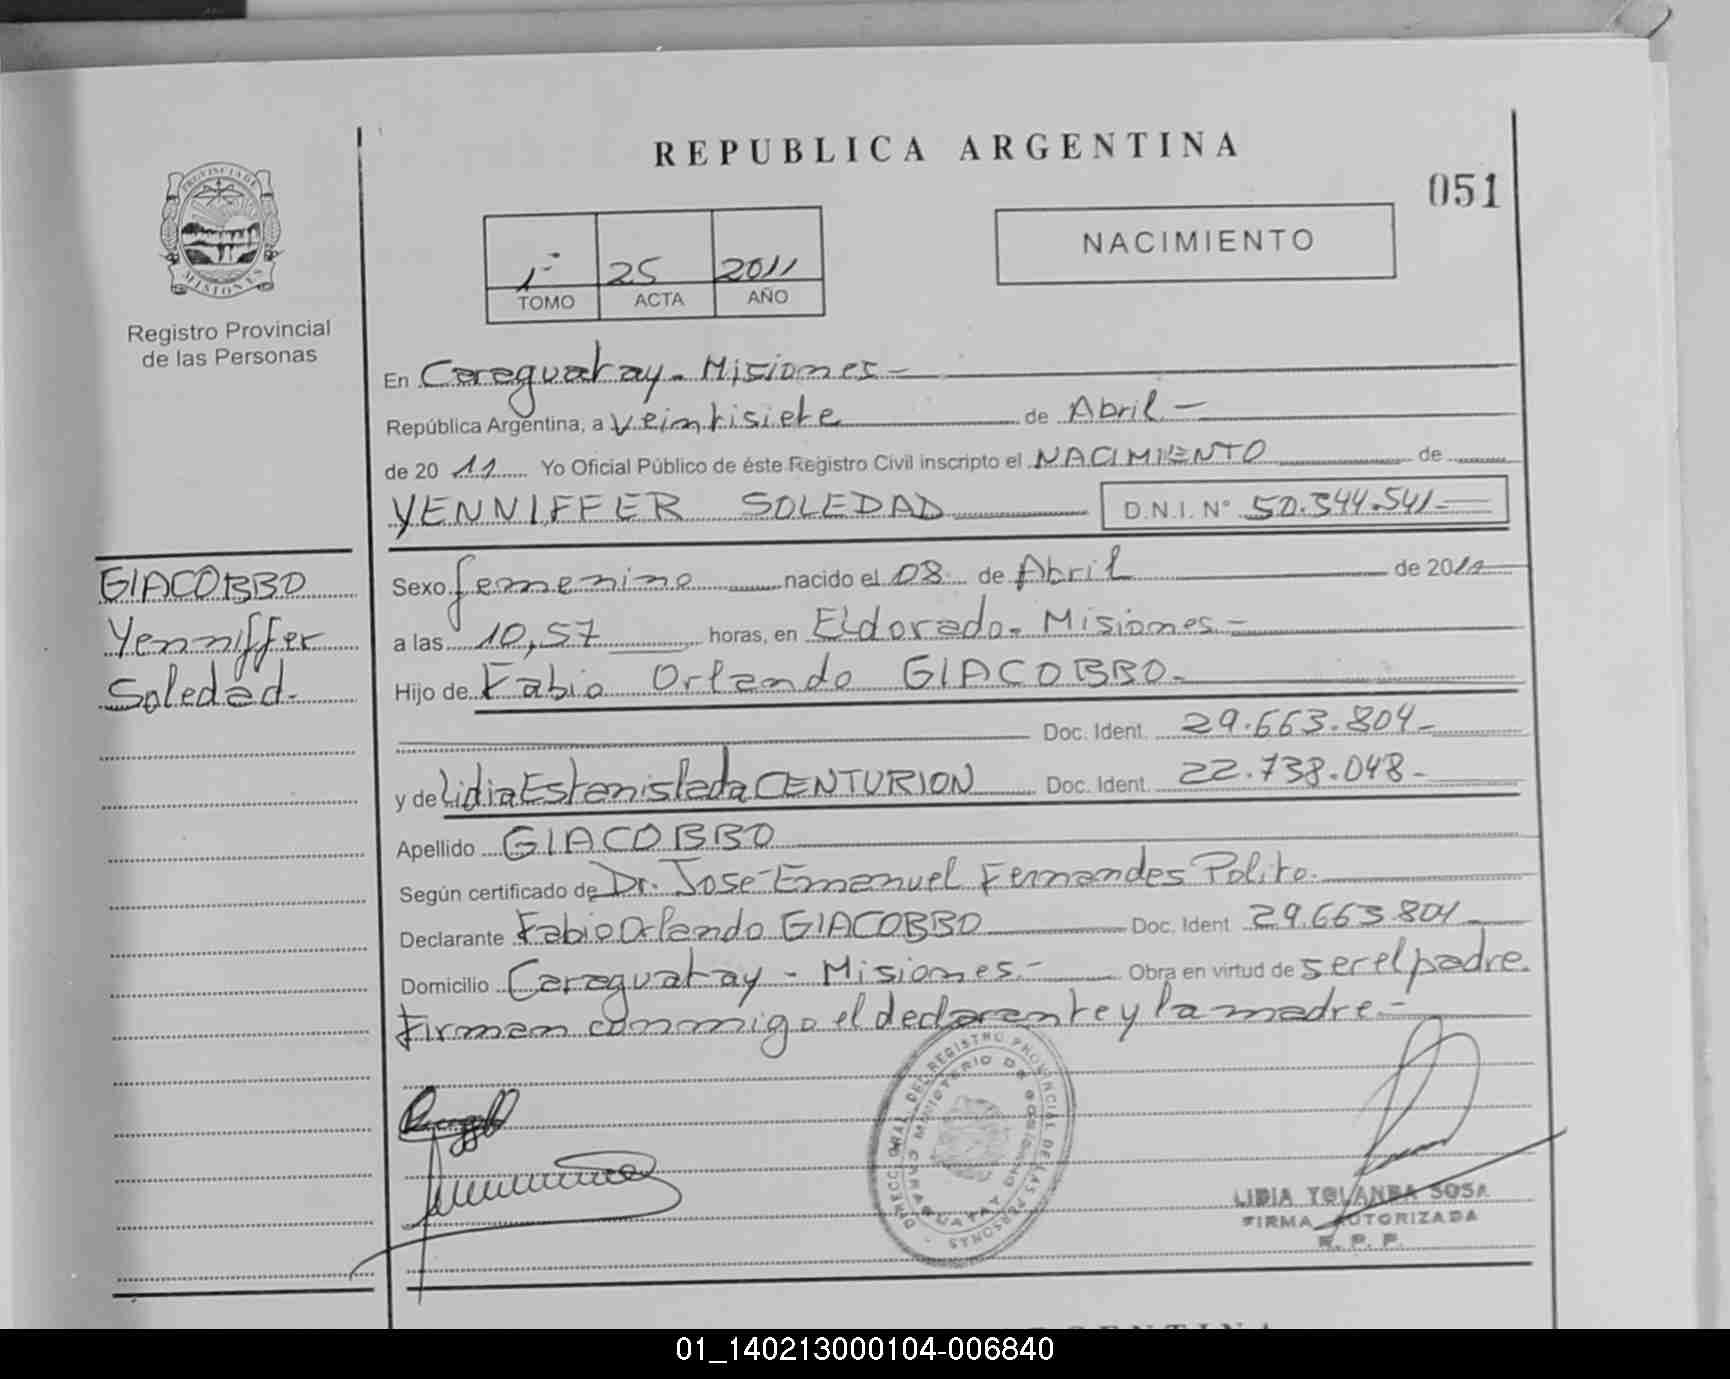 REPUBLICA ARGENTINA
051
PROVINCIA DE
MISIONES
Registro Provincial
de las Personas
1º 25 2011
TOMO ACTA AÑO
NACIMIENTO
En Caraguatay - Misiones -
República Argentina, a Veintisiete de Abril -
de 20 11 Yo Oficial Público de éste Registro Civil inscripto el NACIMIENTO de
YENNIFFER SOLEDAD D.N.I. N° 50.344.541-
GIACOBBO
Yenniffer
Soledad-
Sexo femenino nacido el 08 de Abril de 20
a las 10,57 horas, en Eldorado - Misiones -
Hijo de Fabio Orlando GIACOBBO -
Doc. Ident. 29.663.804-
y de Lidia Estanislada CENTURION Doc. Ident. 22.738.048-
Apellido GIACOBBO
Según certificado de Dr. Jose Emanuel Fernandes Polito.
Declarante Fabio Orlando GIACOBBO Doc. Ident 29.663.804
Domicilio Caraguatay - Misiones - Obra en virtud de ser el padre.
Firman conmigo el declarante y la madre -
DIRECC GRAL DEL REGISTRO PROVINCIAL DE LAS PERSONAS
MINISTERIO DE GOBIERNO
CARAGUATAY
LIDIA YOLANDA SOSA
FIRMA AUTORIZADA
R. P. P.
01_140213000104-006840